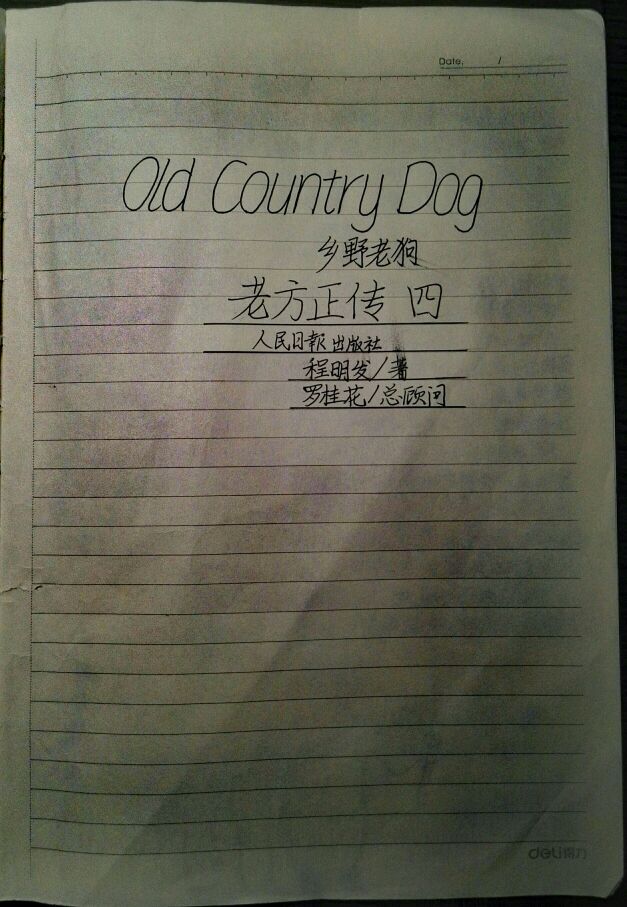 Date. /
Old Country Dog
乡野老狗
老方正传 四
人民日報出版社
程明发/著
罗桂花/总顾问
deli得力